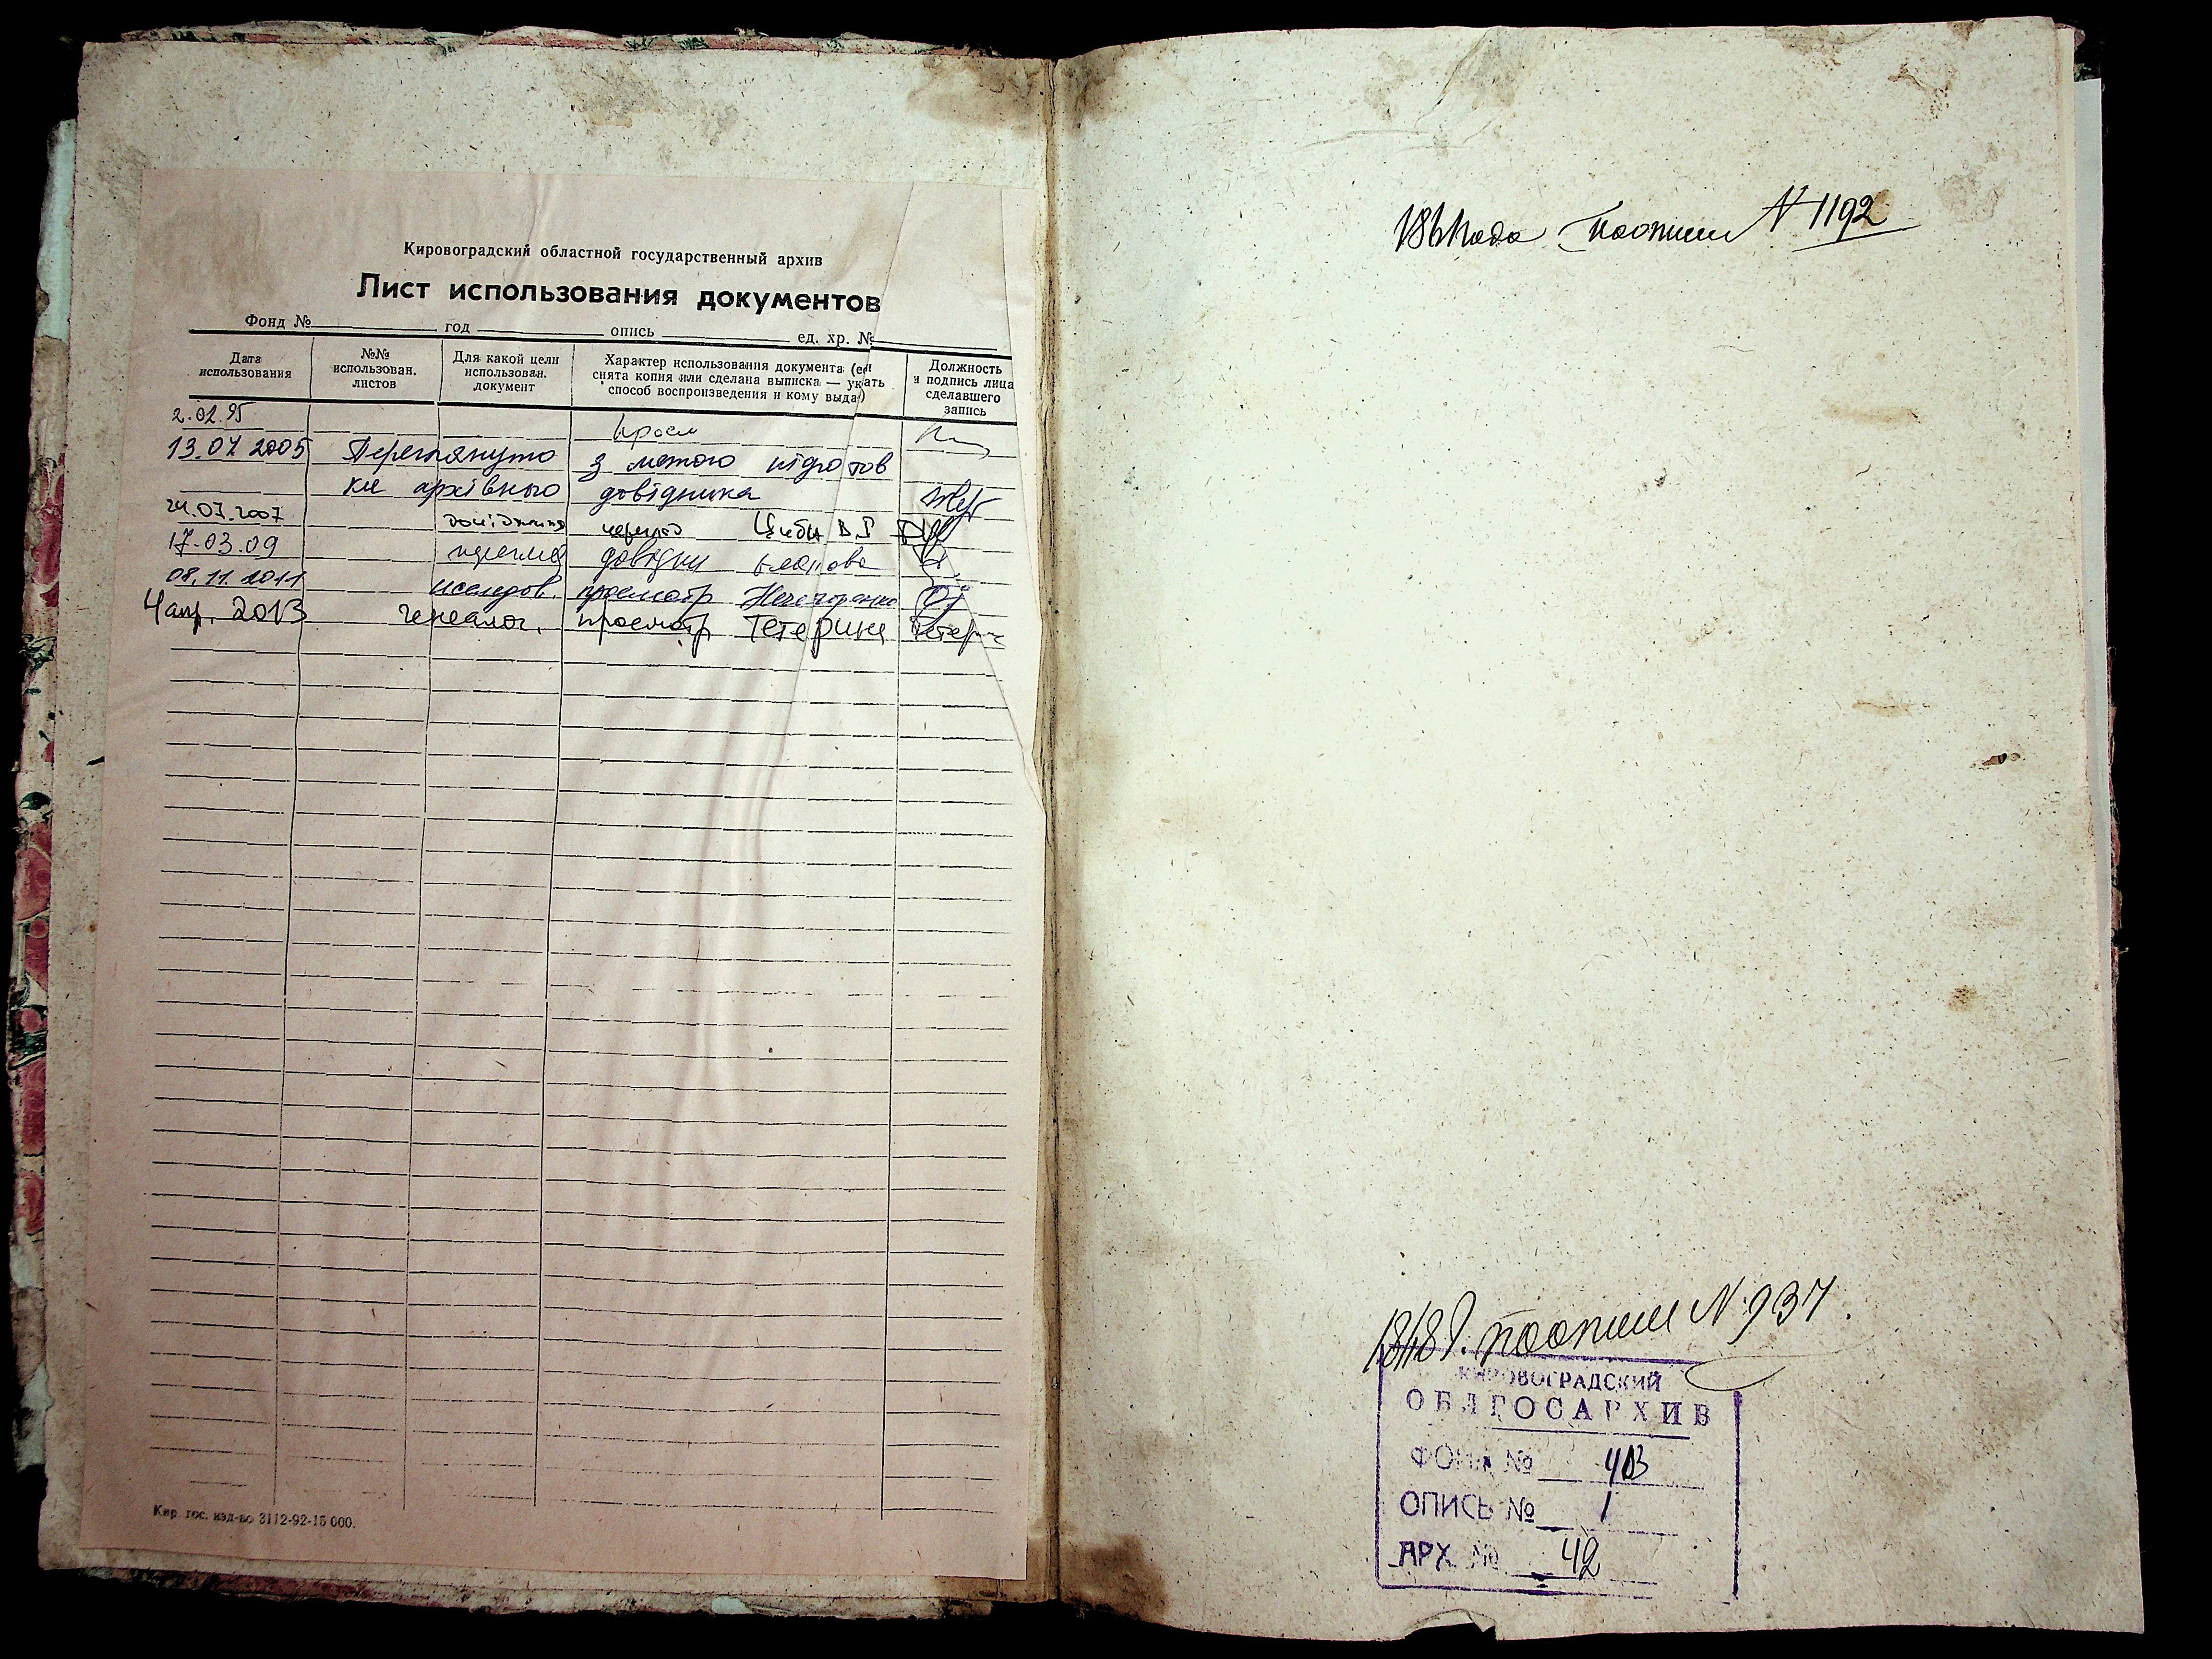 Кировоградский областной государственный архив
Лист использования документов
Фонд № год опись ед. хр. №
Дата использования
№№ использован. листов
Для какой цели использован. документ
Характер использования документа (ес снята копия или сделана выписка — указать способ воспроизведения и кому выда)
Должность и подпись лица сделавшего запись
2.02.95 просм
13.07 2005 Переглянуто з метою підготов
ки архівного довідника
24.07.2007
17.03.09 довідки
08.11.2011 исследов. просмотр
4 апр. 2013 генеалог. просмотр Тетерина
Кир. гос. изд-во 3112-92-15 000.
1861 года по описи N 1192
по описи N 937.
КИРОВОГРАДСКИЙ
ОБЛГОСАРХИВ
ФОНД №
ОПИСЬ № 1
АРХ № 42